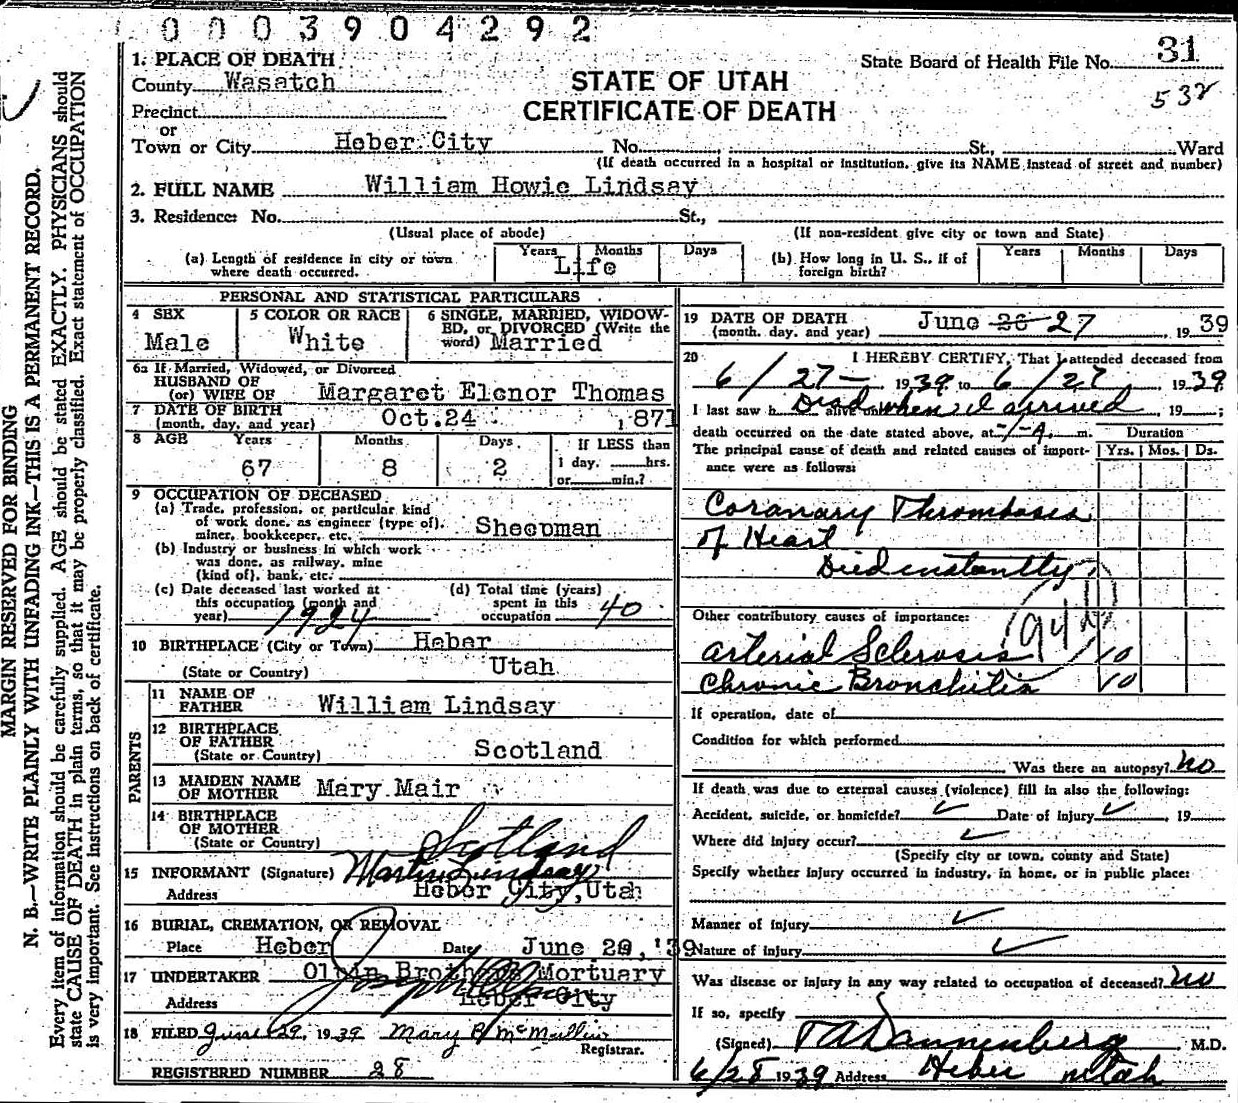 0003904292
1. PLACE OF DEATH
County Wasatch
Precinct
or
Town or City Heber City No. St., Ward
(If death occurred in a hospital or institution, give its NAME instead of street and number)
STATE OF UTAH
CERTIFICATE OF DEATH
State Board of Health File No. 31
532
2. FULL NAME William Howie Lindsay
3. Residence: No. St.,
(Usual place of abode) (If non-resident give city or town and State)
(a) Length of residence in city or town where death occurred. Years Months Days Life
(b) How long in U. S., if of foreign birth? Years Months Days
PERSONAL AND STATISTICAL PARTICULARS
4 SEX Male
5 COLOR OR RACE White
6 SINGLE, MARRIED, WIDOW-
ED, or DIVORCED (Write the
word) Married
6a If Married, Widowed, or Divorced
HUSBAND OF
(or) WIFE OF Margaret Elenor Thomas
7 DATE OF BIRTH
(month, day, and year) Oct.24 1871
8 AGE Years Months Days If LESS than
67 8 2 1 day, hrs.
or min.?
9 OCCUPATION OF DECEASED
(a) Trade, profession, or particular kind
of work done, as engineer (type of),
miner, bookkeeper, etc. Sheepman
(b) Industry or business in which work
was done, as railway, mine
(kind of), bank, etc.
(c) Date deceased last worked at
this occupation (month and
year) 1924
(d) Total time (years)
spent in this
occupation 40
10 BIRTHPLACE (City or Town) Heber
(State or Country) Utah
PARENTS
11 NAME OF
FATHER William Lindsay
12 BIRTHPLACE
OF FATHER
(State or Country) Scotland
13 MAIDEN NAME
OF MOTHER Mary Mair
14 BIRTHPLACE
OF MOTHER
(State or Country) Scotland
15 INFORMANT (Signature) Martin Lindsay
Address Heber City, Utah
16 BURIAL, CREMATION, OR REMOVAL
Place Heber Date June 29, '39
17 UNDERTAKER Olpin Brothers Mortuary
Address Heber City
18 FILED June 29, 1939 Mary B McMullin
Registrar.
REGISTERED NUMBER 28
19 DATE OF DEATH
(month, day, and year) June 26 27 1939
20 I HEREBY CERTIFY, That I attended deceased from
6/27 1939 to 6/27, 1939
I last saw h alive on Dead when I arrived, 19 ;
death occurred on the date stated above, at 1-A. m.
The principal cause of death and related causes of import-
ance were as follows:
Duration
Yrs. Mos. Ds.
Coranary Thrombosis
of Heart
Died instantly
Other contributory causes of importance:
94
Arterial Sclerosis 10
Chronic Bronchitis 10
If operation, date of
Condition for which performed
Was there an autopsy? No
If death was due to external causes (violence) fill in also the following:
Accident, suicide, or homicide? Date of injury , 19
Where did injury occur?
(Specify city or town, county and State)
Specify whether injury occurred in industry, in home, or in public place:
Manner of injury
Nature of injury
Was disease or injury in any way related to occupation of deceased? No
If so, specify
(Signed) T A Dannenberg, M.D.
6/28 1939 Address Heber Utah
MARGIN RESERVED FOR BINDING
N. B.—WRITE PLAINLY WITH UNFADING INK—THIS IS A PERMANENT RECORD.
Every item of information should be carefully supplied. AGE should be stated EXACTLY. PHYSICIANS should
state CAUSE OF DEATH in plain terms, so that it may be properly classified. Exact statement of OCCUPATION
is very important. See instructions on back of certificate.